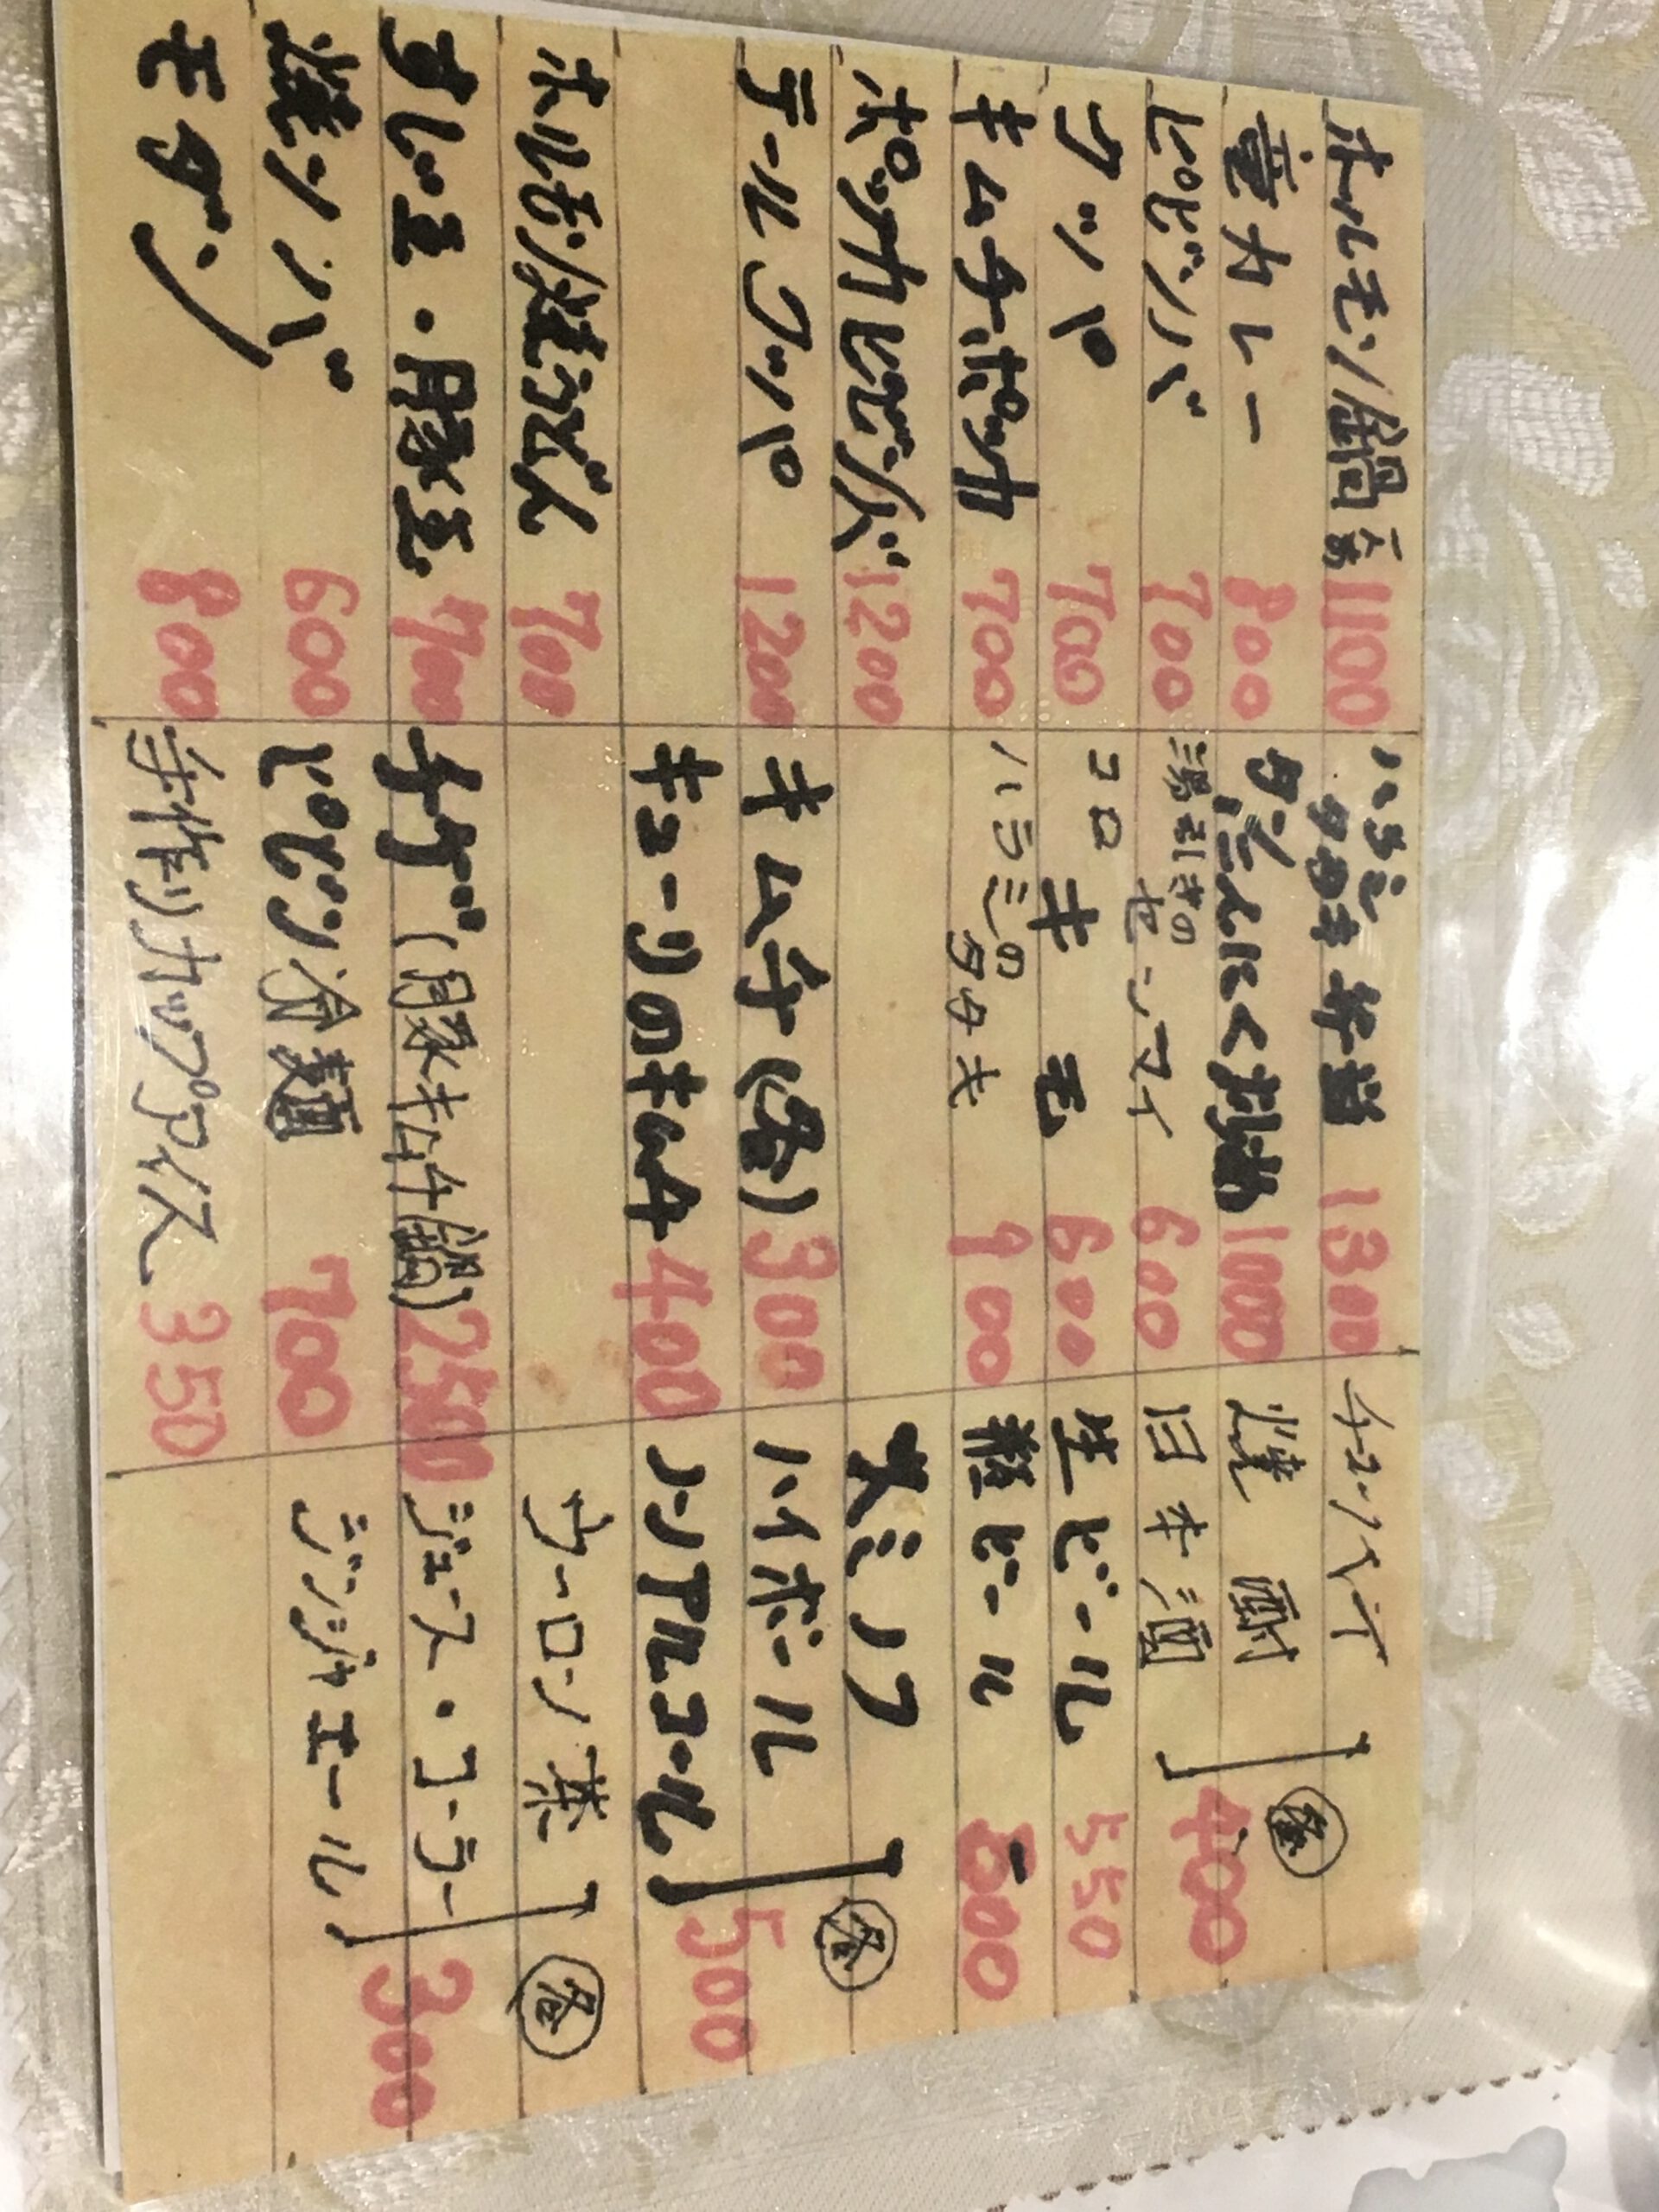 ホルモン鍋 1100
カレー 800
ピビンバ 700
クッパ 700
キムチポッカ 700
ポッカピビンバ 1200
テールクッパ 1200
ホルモン焼うどん 700
すじ玉・豚玉 700
焼ソバ 600
モダン 800
ハラミ
タタキ弁当 1300
にんにく 1000
湯引きの
センマイ 600
コロキモ 600
ハラミの
タタキ 900
キムチ(各) 300
キューリのキムチ 400
チゲ(豚キムチ鍋) 2500
ピビン冷麺 700
手作りカップアイス 350
チューハイ
焼酎 各
日本酒 400
生ビール 550
瓶ビール
スミノフ 各
ハイボール
ノンアルコール 500
ウーロン茶 各
ジュース・コーラ
ジンジャエール 300